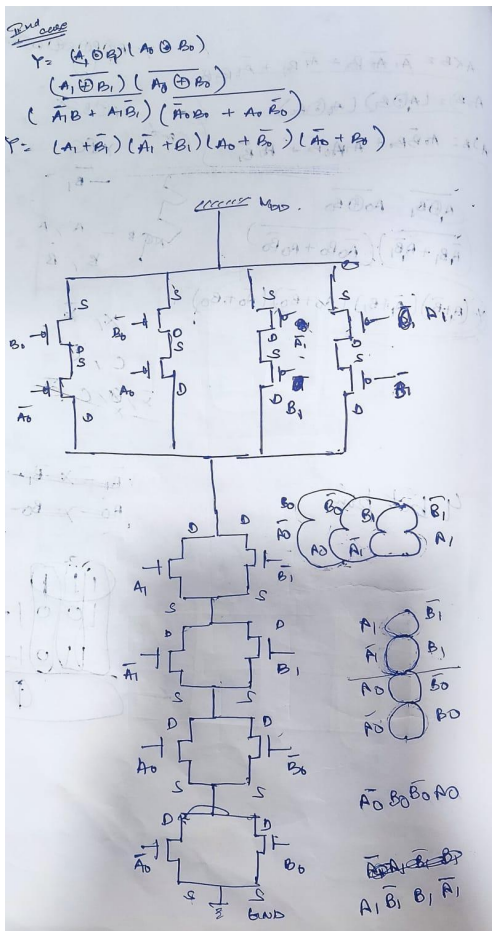 IInd case
Y = (A₁ ⊙ B₁) (A₀ ⊙ B₀)
(A̅₁̅ ̅⊕̅ ̅B̅₁̅) (A̅₀̅ ̅⊕̅ ̅B̅₀̅)
(A̅₁B + A₁B̅₁) (A̅₀B₀ + A₀B̅₀)
Y = (A₁ + B̅₁) (A̅₁ + B₁) (A₀ + B̅₀) (A̅₀ + B₀)
VDD
S S S S
B₀ B̅₀ A₁
D D D D
A̅₁
S S S S
A̅₀ A₀ B̅₁
D D D D
B₁
D D
A₁ B̅₁
S S
D D
A̅₁ B₁
S S
D D
A₀ B̅₀
S S
D D
A̅₀ B₀
S S
GND
B₀ B̅₀ B₁ B̅₁
A̅₀ A₀ A̅₁ A₁
A₁ B̅₁
A̅₁ B₁
A₀ B̅₀
A̅₀ B₀
A̅₀ B₀ B̅₀ A₀
A₁ B̅₁ B₁ A̅₁